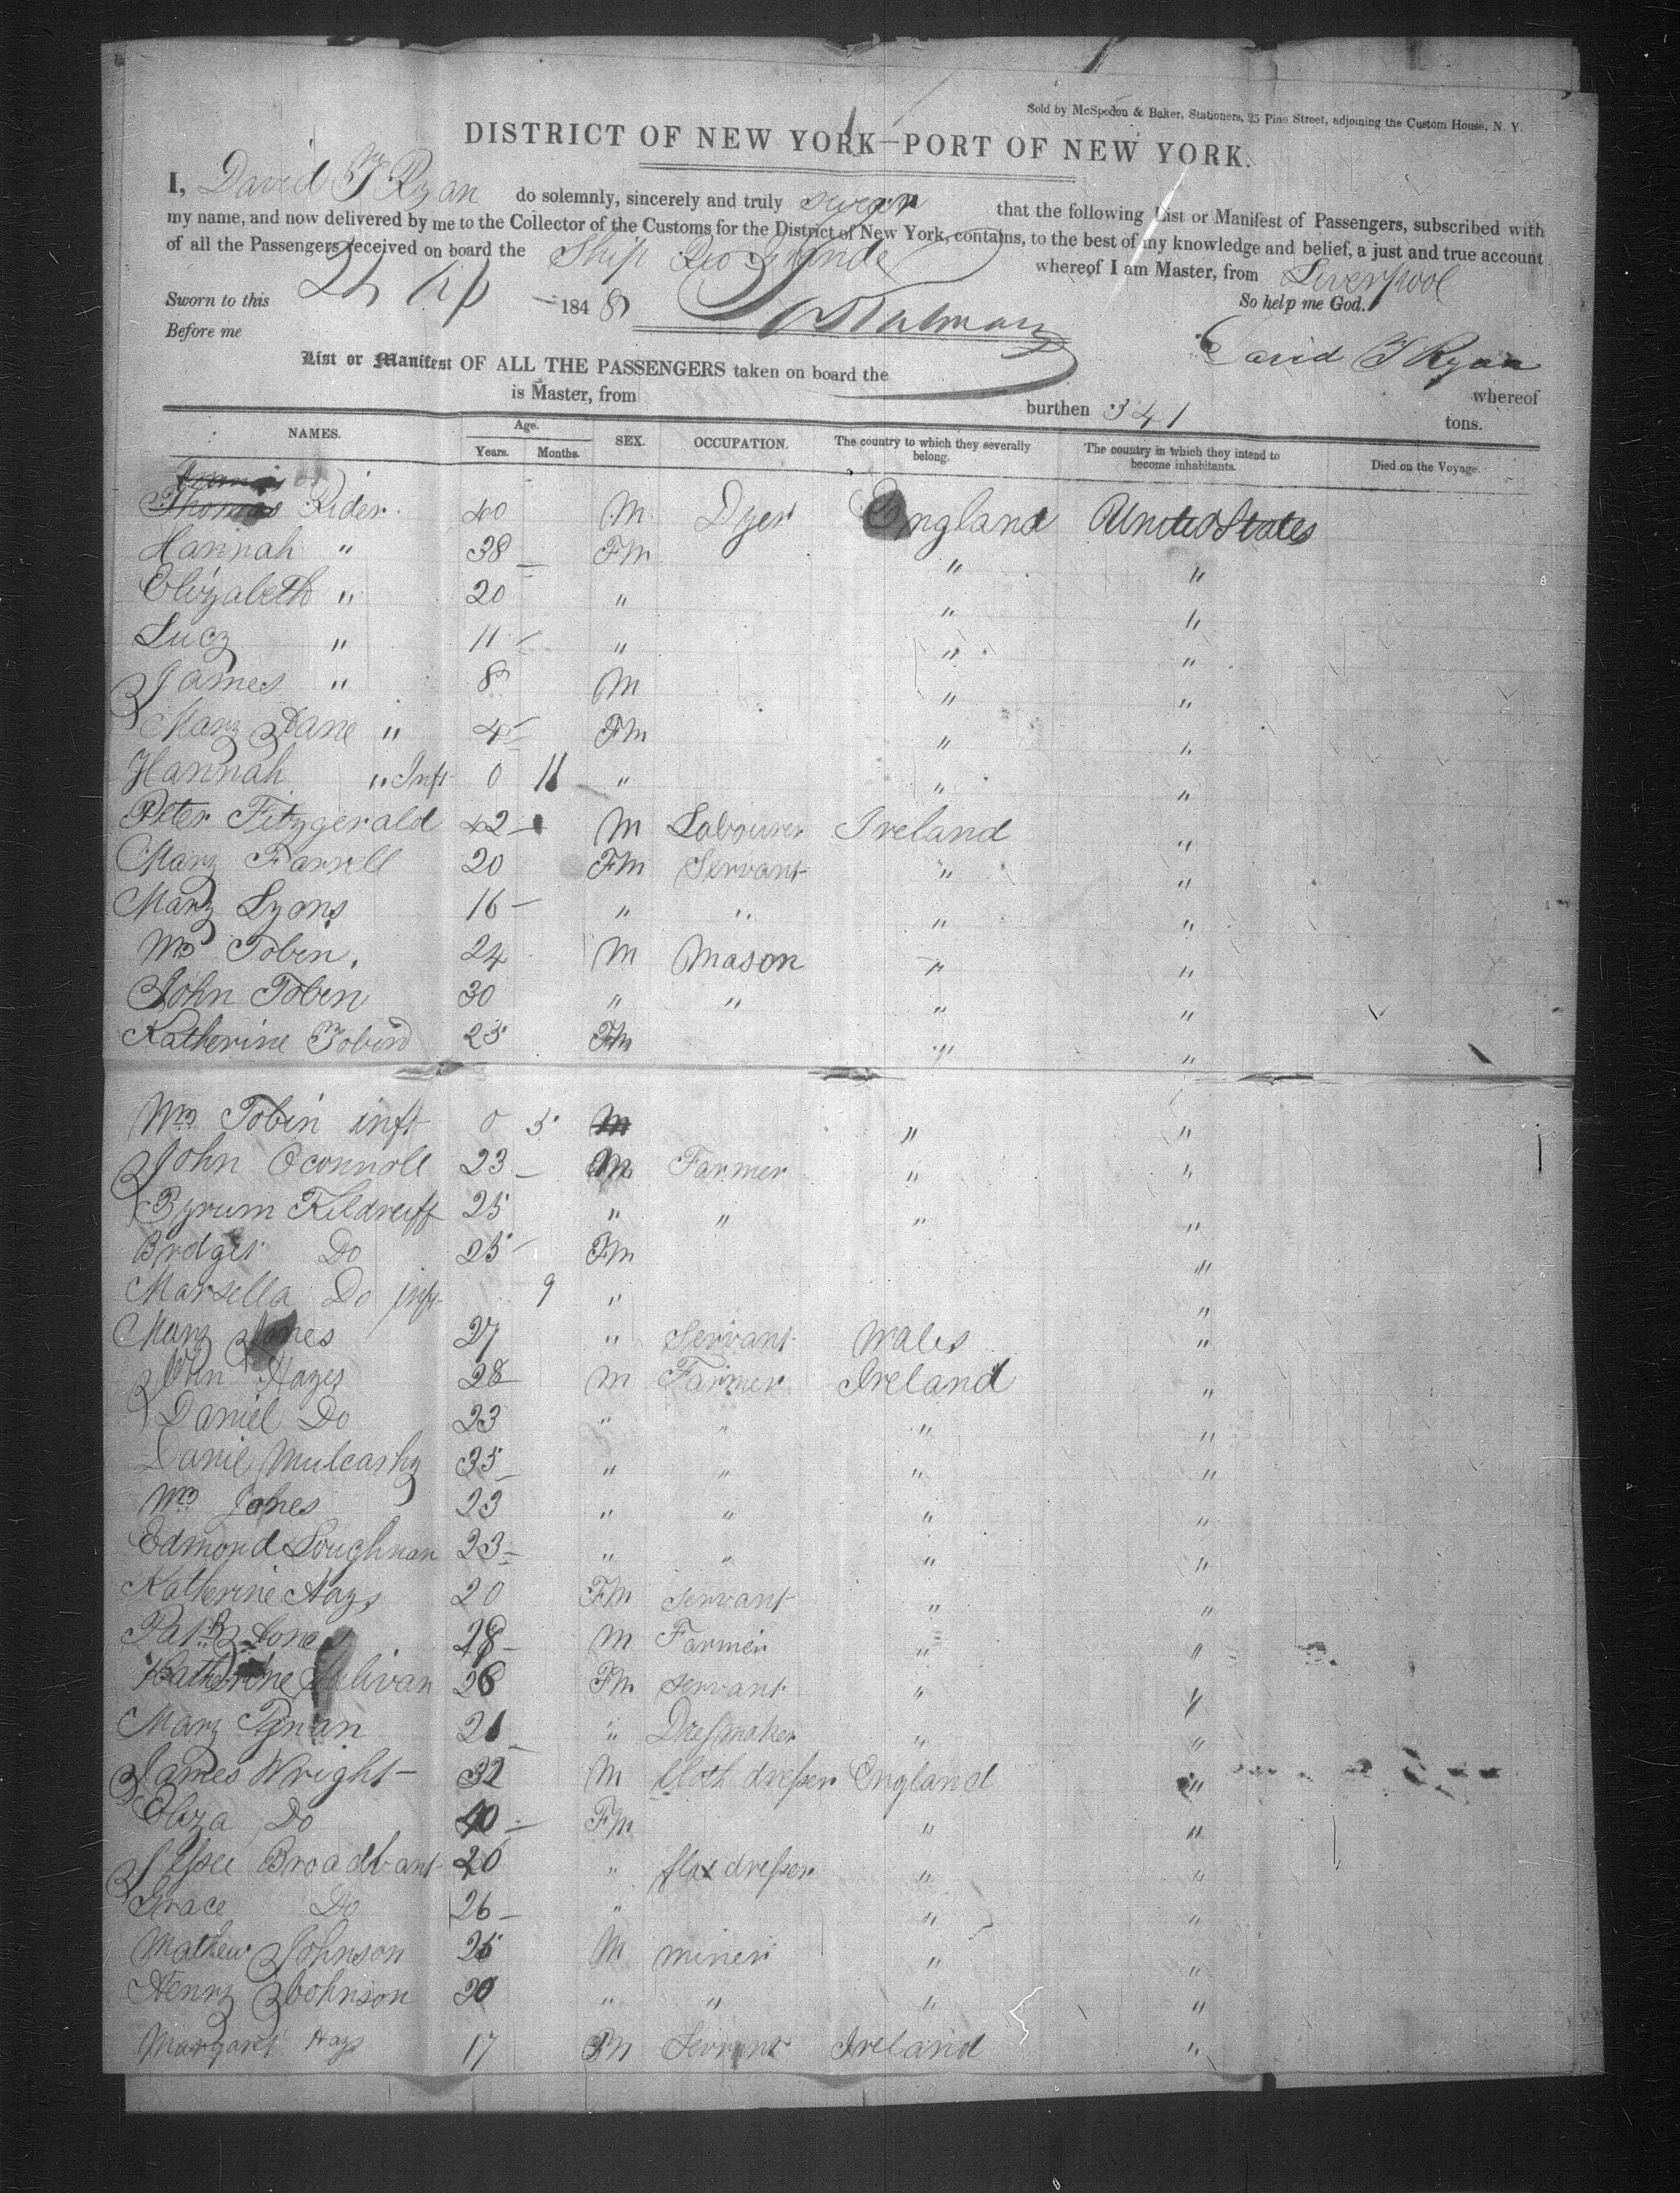 Sold by McSpedon & Baker, Stationers, 25 Pine Street, adjoining the Custom House, N. Y.
DISTRICT OF NEW YORK—PORT OF NEW YORK.
I, David T Ryan do solemnly, sincerely and truly swear that the following List or Manifest of Passengers, subscribed with
my name, and now delivered by me to the Collector of the Customs for the District of New York, contains, to the best of my knowledge and belief, a just and true account
of all the Passengers received on board the Ship Rio Grande whereof I am Master, from Liverpool
Sworn to this 1848 So help me God.
Before me David T Ryan
List or Manifest OF ALL THE PASSENGERS taken on board the whereof
is Master, from burthen 341 tons.
NAMES. Age. Years. Months. SEX. OCCUPATION. The country to which they severally belong. The country in which they intend to become inhabitants. Died on the Voyage.
Thomas Rider 40 M Dyer England United States
Hannah " 38 Fm " "
Elizabeth " 20 " " "
Lucy " 11 " " "
James " 8 M " "
Mary Jane " 4 Fm " "
Hannah " Inft 0 11 " " "
Peter Fitzgerald 42 M Labourer Ireland "
Mary Farrell 20 Fm Servant " "
Mary Lyons 16 " " " "
Wm Tobin 24 M Mason " "
John Tobin 30 " " " "
Katherine Tobin 25 Fm " "
Wm Tobin inft 0 5 M " "
John Oconnoll 23 M Farmer " "
Byrum Kildreiff 25 " " " "
Bridget Do 25 Fm "
Marsella Do inft 9 " "
Mary Jones 27 " Servant Wales "
John Hayes 28 M Farmer Ireland "
Daniel Do 23 " " " "
Daniel Mulcashy 35 " " " "
Wm Jones 23 " " " "
Edmond Loughnan 23 " " " "
Katherine Hays 20 Fm servant " "
Patk Jones 28 M Farmer " "
Katherine Sulivan 26 Fm servant " "
Mary Tynan 21 " Dressmaker " "
James Wright 32 M Cloth dresser England "
Eliza Do 40 Fm " "
Jessee Broadbant 26 " flax dresser " "
Grace Do 26 " " "
Mathew Johnson 25 M miner " "
Henry Johnson 20 " " " "
Margaret Hays 17 Fm Servant Ireland "